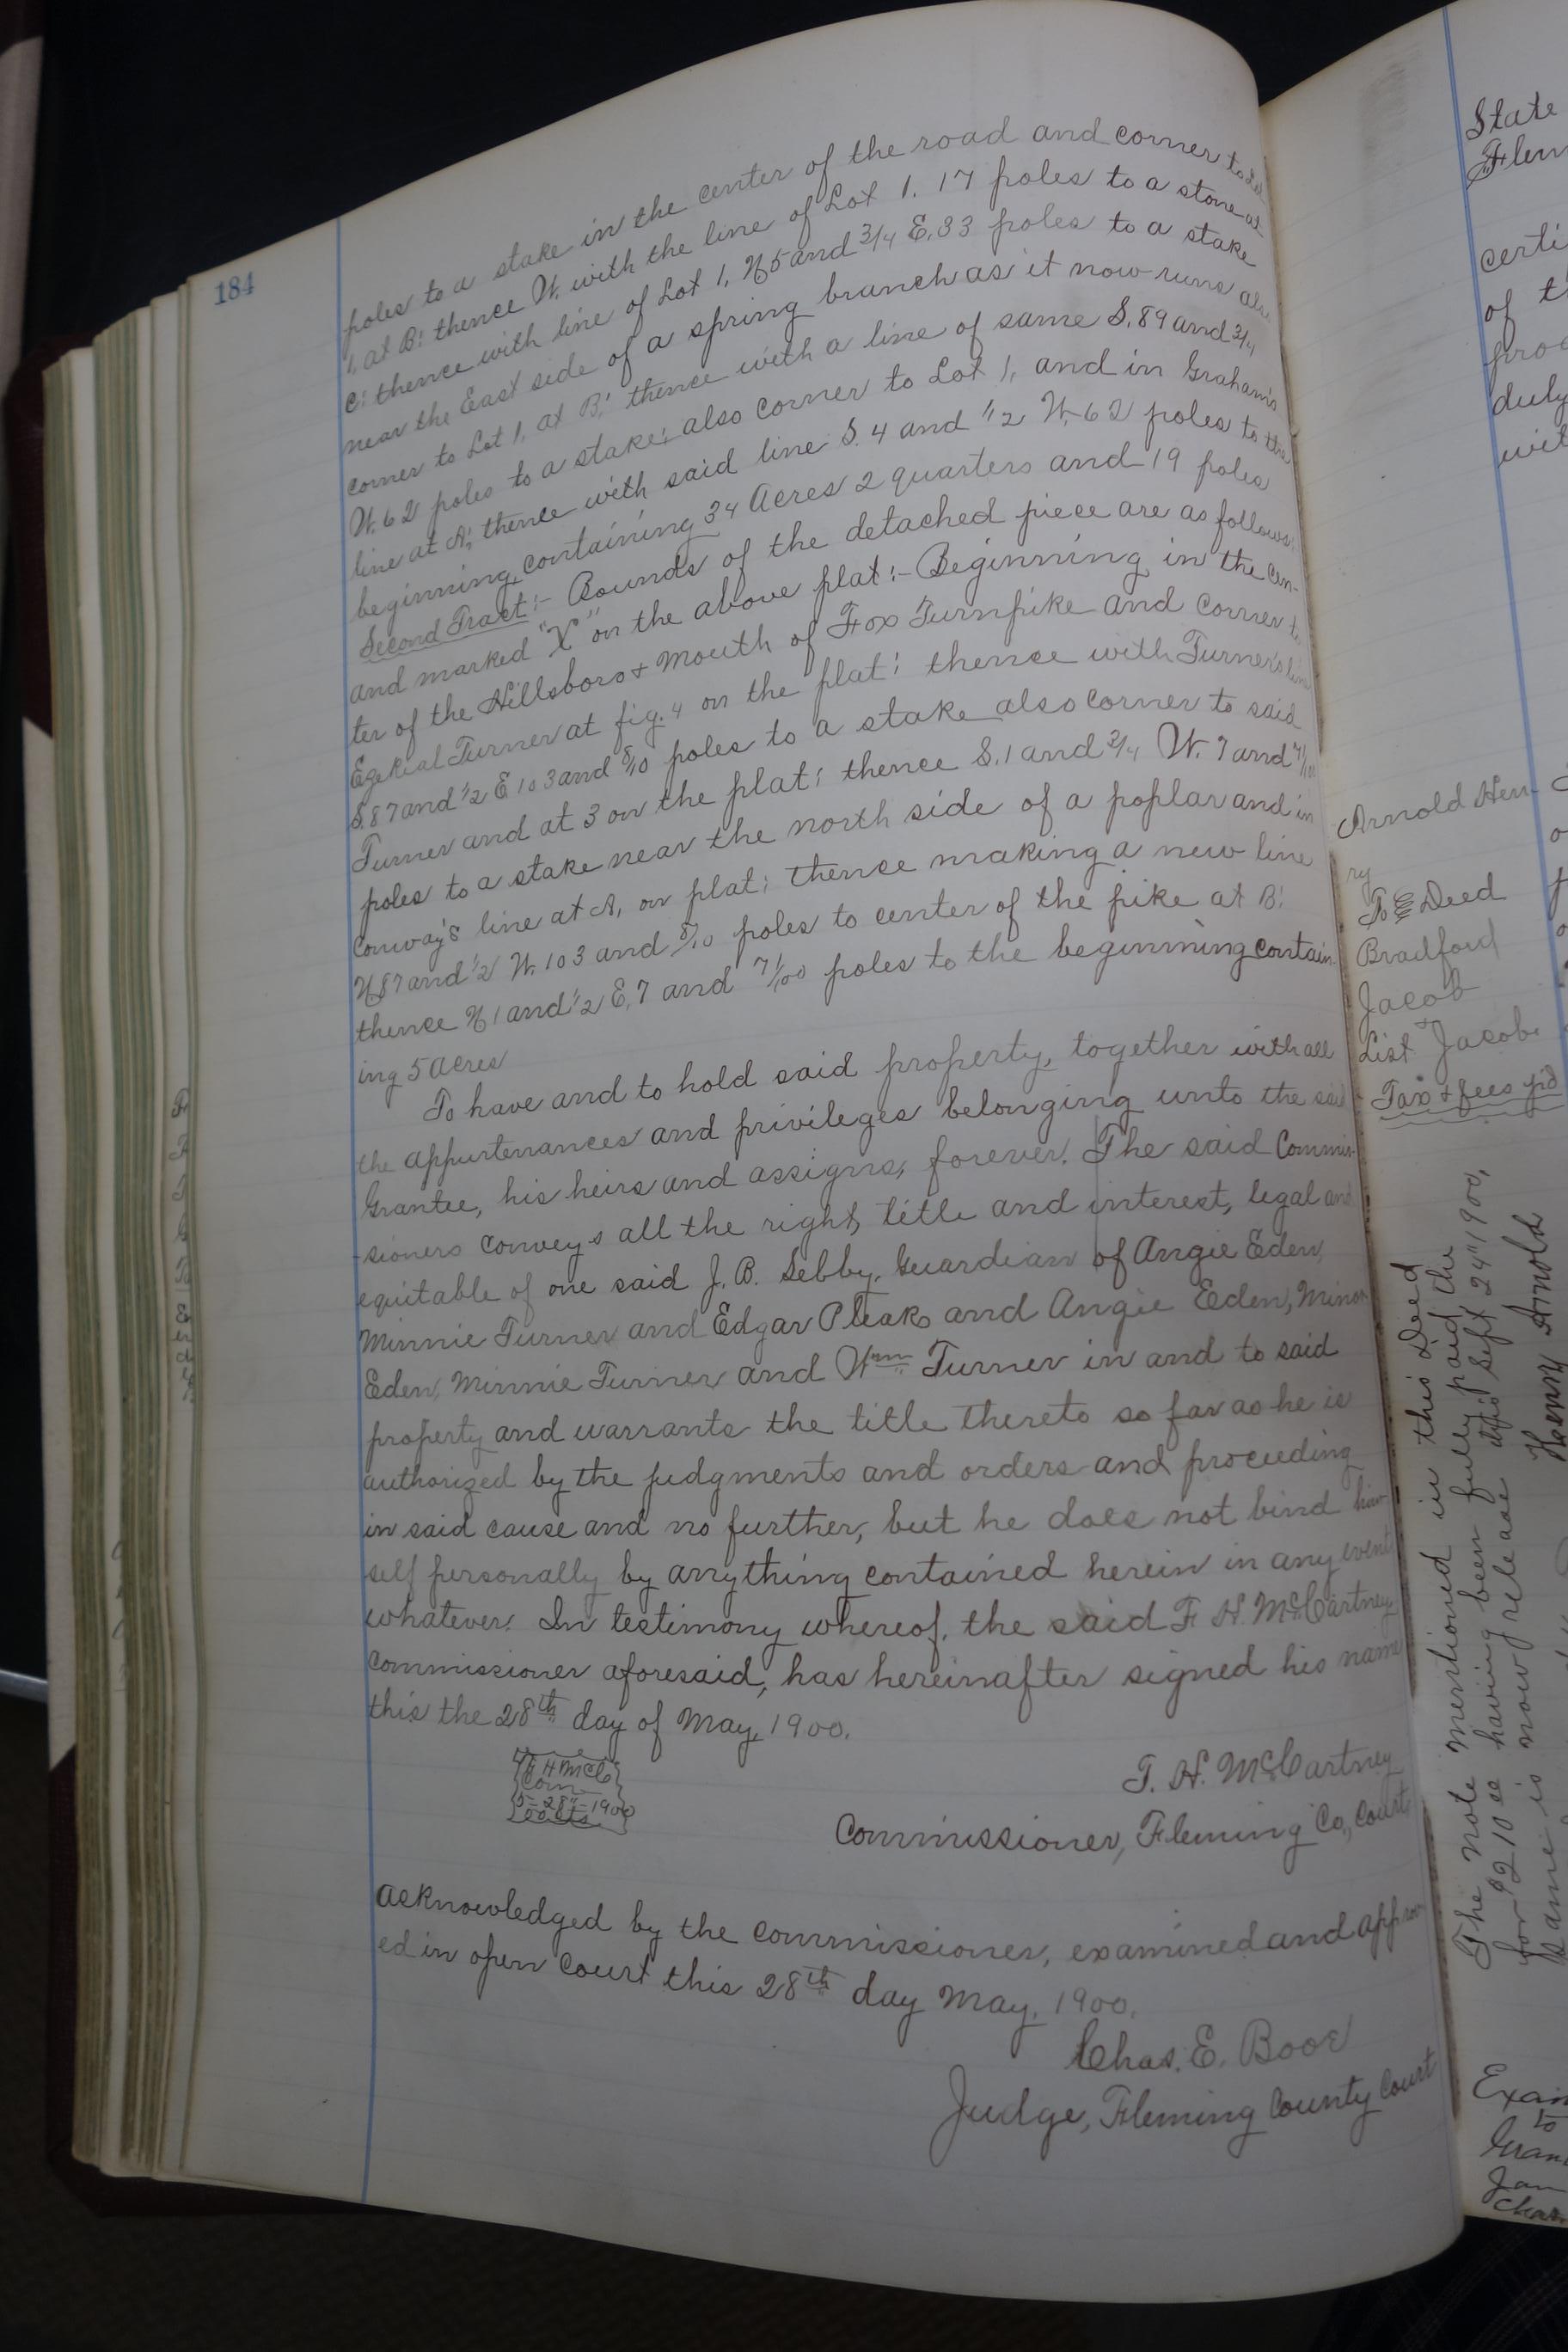 184
poles to a stake in the center of the road and corner to Lot
1, at B; thence W. with the line of Lot 1. 17 poles to a stone at
C; thence with line of Lot 1, N 5 and 3/4 E. 33 poles to a stake
near the East side of a spring branch as it now runs also
corner to Lot 1, at B; thence with a line of same S. 89 and 3/4
W. 62 poles to a stake; also corner to Lot 1, and in Graham's
line at A; thence with said line S. 4 and 1/2 W. 62 poles to the
beginning, containing 34 Acres 2 quarters and 19 poles
Second Tract:- Bounds of the detached piece are as follows
and marked "X" on the above plat:- Beginning in the cen-
ter of the Hillsboro & Mouth of Fox Turnpike and corner to
Ezekial Turner at fig. 4 on the plat; thence with Turner's line
S. 87 and 1/2 E 103 and 8/10 poles to a stake also corner to said
Turner and at 3 on the plat; thence S. 1 and 3/4 W. 7 and 71/100
poles to a stake near the north side of a poplar and in
Conway's line at A, on plat; thence making a new line
N 87 and 1/2 W. 103 and 8/10 poles to center of the pike at B;
thence N 1 and 1/2 E. 7 and 71/100 poles to the beginning contain-
ing 5 Acres
To have and to hold said property, together with all
the appurtenances and privileges belonging unto the said
Grantee, his heirs and assigns, forever. The said Commis-
-sioners conveys all the right, title and interest, legal and
equitable of one said J. B. Sebby, Guardian of Angie Eden,
Minnie Turner and Edgar Pleak and Angie Eden, Minor
Eden, Minnie Turner and Wm Turner in and to said
property and warrants the title thereto so far as he is
authorized by the judgments and orders and proceeding
in said cause and no further, but he does not bind him-
self personally by anything contained herein in any event
whatever. In testimony whereof, the said F. H. McCartney,
Commissioner aforesaid, has hereinafter signed his name
this the 28th day of May, 1900.
F H McC
Com
5-28"-1900
50 cts.
F. H. McCartney
Commissioner, Fleming Co., Court
Acknowledged by the commissioner, examined and approv-
ed in open Court this 28th day May, 1900.
Chas. E. Booe
Judge, Fleming County Court
State
Flem
certi
of t
proc
duly
wit
Arnold Hen-
ry
To Deed
Bradford
Jacob
List Jacob
Tax & fees p'd
The note mentioned in this Deed
for $210 having been fully paid the
same is now release this Sept 24" 1900,
Henry Arnold
Exam
to
Gran
Jan
Chas.